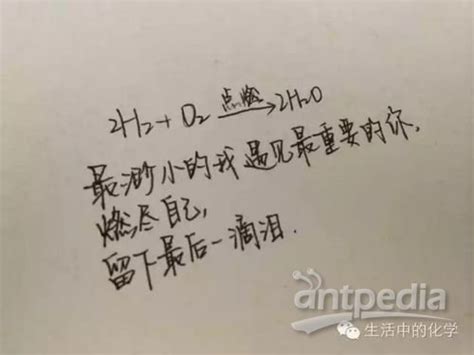 2H₂+O₂ 点燃→ 2H₂O
最渺小的我遇见最重要的你,
燃尽自己,
留下最后一滴泪.
antpedia
生活中的化学